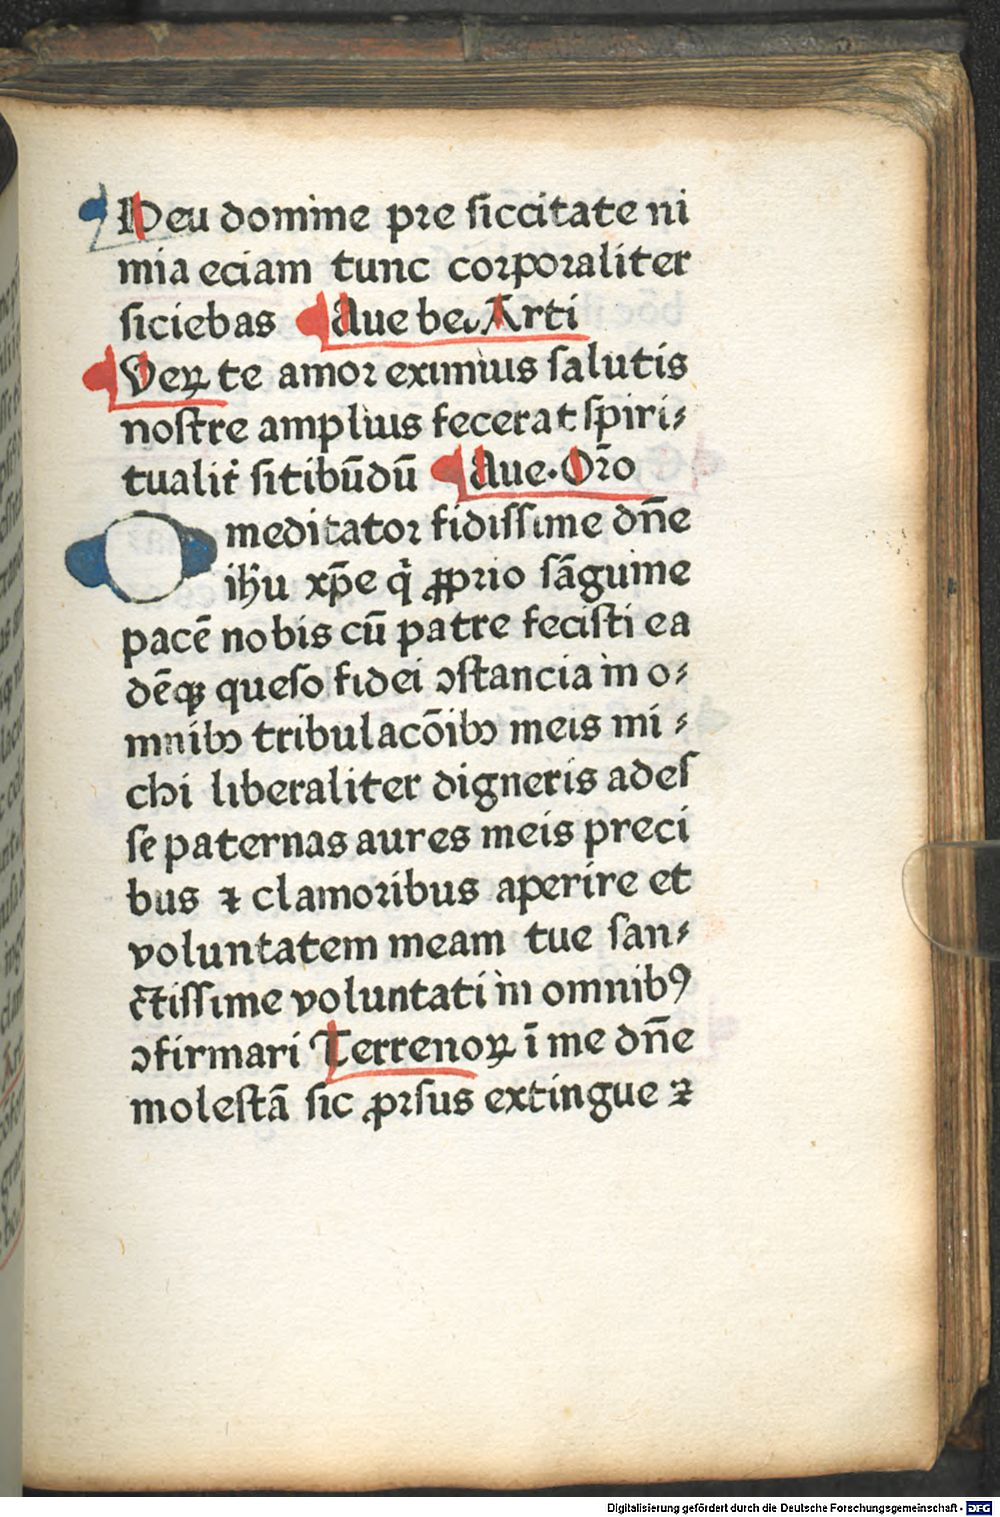 Heu domine pre siccitate ni
mia eciam tunc corporaliter
siciebas Aue be. Arti
Veꝝ te amor eximius salutis
nostre amplius fecerat spiri⸗
tualit᷑ sitibūdū Aue. Or̄o
O meditator fidissime dn̄e
ihū xp̄e qͥ ꝓprio sāguine
pacē nobis cū patre fecisti ea
dēqꝫ queso fidei ↄstancia in o⸗
mnibꝫ tribulacōibꝫ meis mi⸗
chi liberaliter digneris ades
se paternas aures meis preci
bus ⁊ clamoribus aperire et
voluntatem meam tue san⸗
ctissime voluntati in omnibꝰ
ↄfirmari Terrenoꝝ ī me dn̄e
molestā sic ꝓrsus extingue ⁊
Digitalisierung gefördert durch die Deutsche Forschungsgemeinschaft - DFG